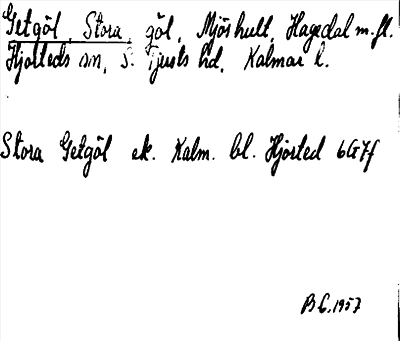 Getgöl, Stora, göl, Mjöshult, Hagedal m.fl.
Hjorteds sn, S. Tjusts hd, Kalmar l.
Stora Getgöl ek. Kalm. bl. Hjorted 6G7f
B.C. 1957